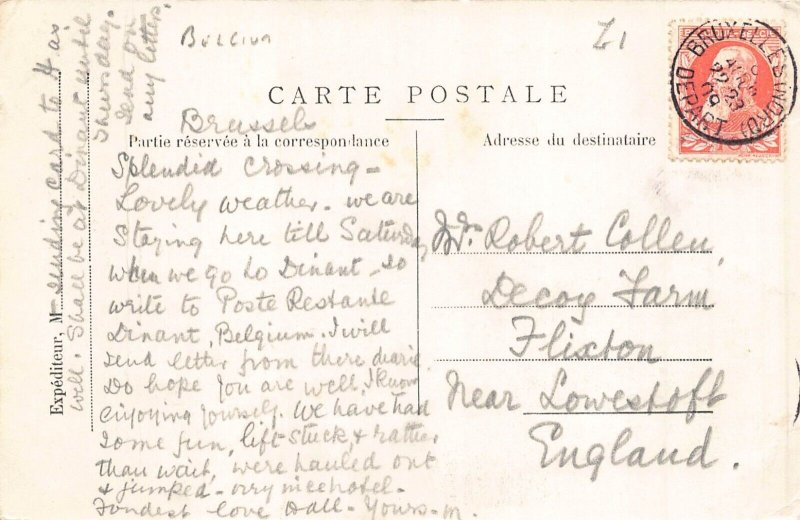 Z1
BRUXELLES (NORD)
22 23
DEPART
CARTE POSTALE
Partie réservée à la correspondance
Adresse du destinataire
Brussels
Splendid crossing -
Lovely weather - we are
staying here till Saturday
when we go to Dinant - so
write to Poste Restante
Dinant, Belgium. I will
send letter from there
Do hope you are well, I know
enjoying yourself. We have had
some fun, lift stuck, & rather
than wait, were hauled out
& jumped - very nice hotel -
Fondest love Hall - Yours - M.
Expéditeur, M
sending card to H as
well. Shall be at Dinant until
Thursday.
Send on
any letters.
Mr. Robert Collen,
Decoy Farm
Flixton
Near Lowestoft
England.